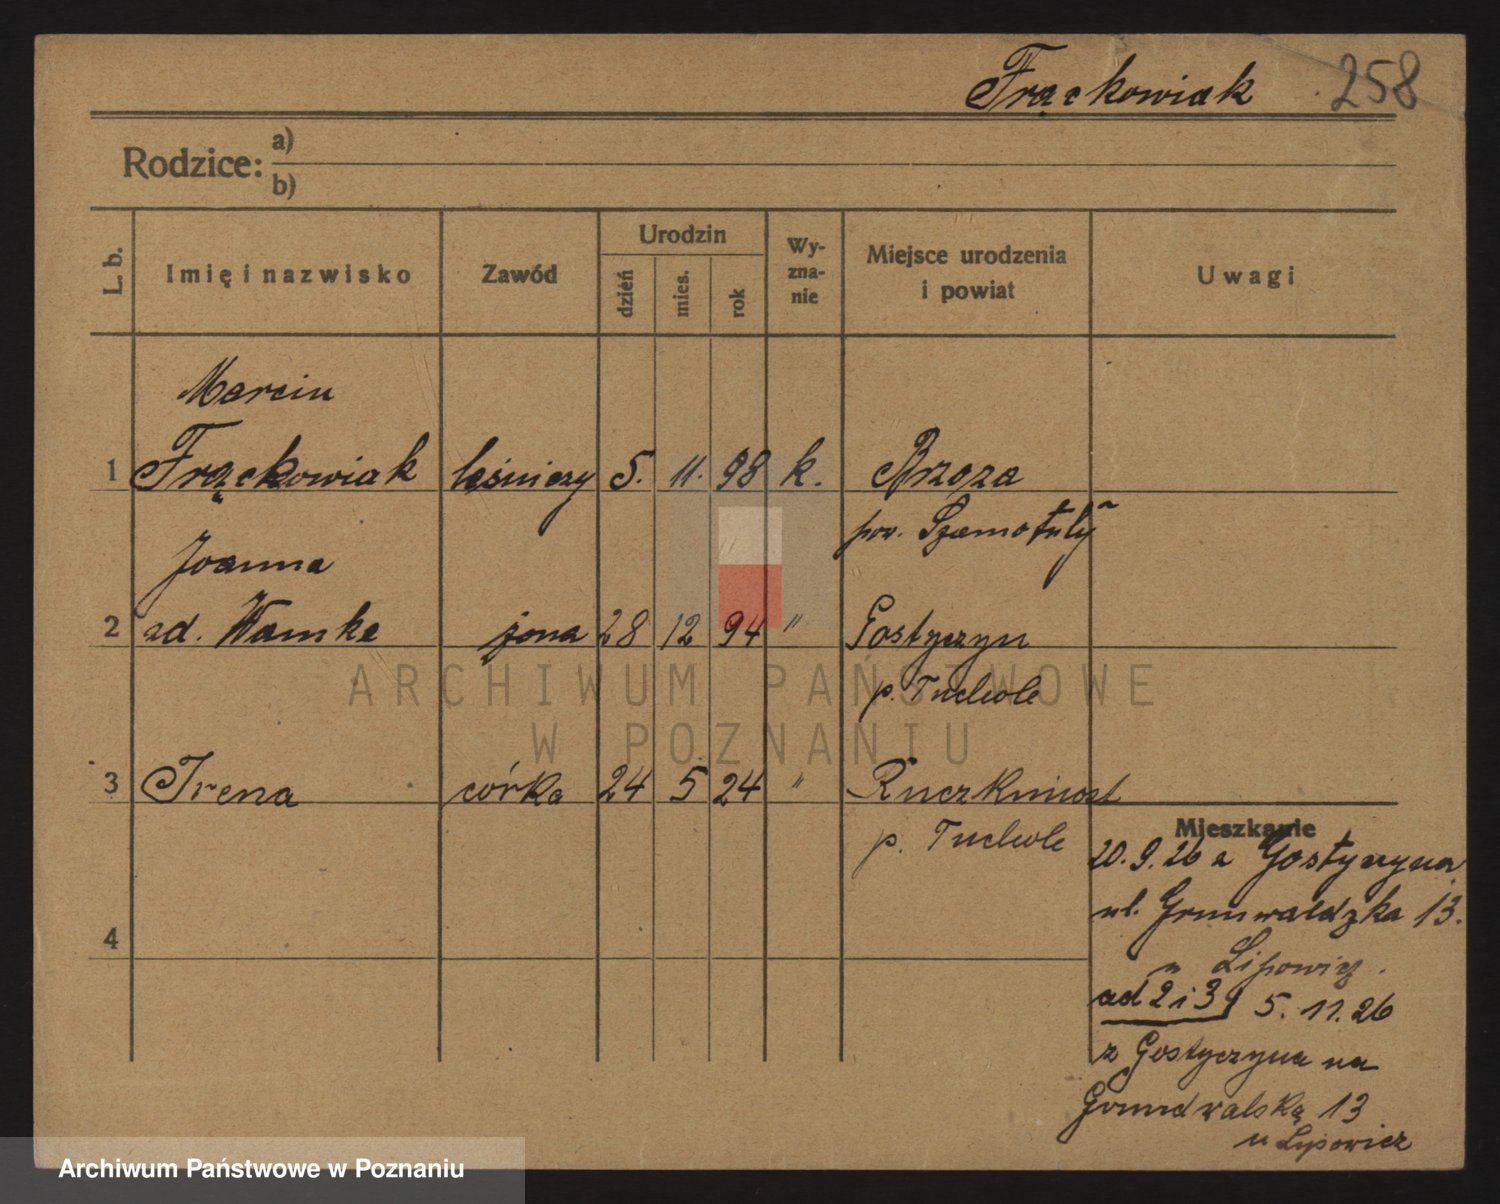 Frąckowiak 258
Rodzice: a)
b)
L. b. Imię i nazwisko Zawód Urodzin dzień mies. rok Wy-zna-nie Miejsce urodzenia i powiat Uwagi
Marcin
1 Frąckowiak leśniczy 5. 11. 98 k. Brzoza
pow. Szamotuły
Joanna
2 zd. Wamke żona 28 12 94 " Gostyczyn
p. Tuchole
ARCHIWUM PAŃSTWOWE
W POZNANIU
3 Irena córka 24 5 24 " Ruczkmiost
p. Tuchole
4
Mieszkanie
20. 9. 26 z Gostyczyna
ul. Grunwaldzka 13.
u Lipowicz.
ad 2 i 3) 5. 11. 26
z Gostyczyna na
Grundwalską 13
u Lipowicz
Archiwum Państwowe w Poznaniu